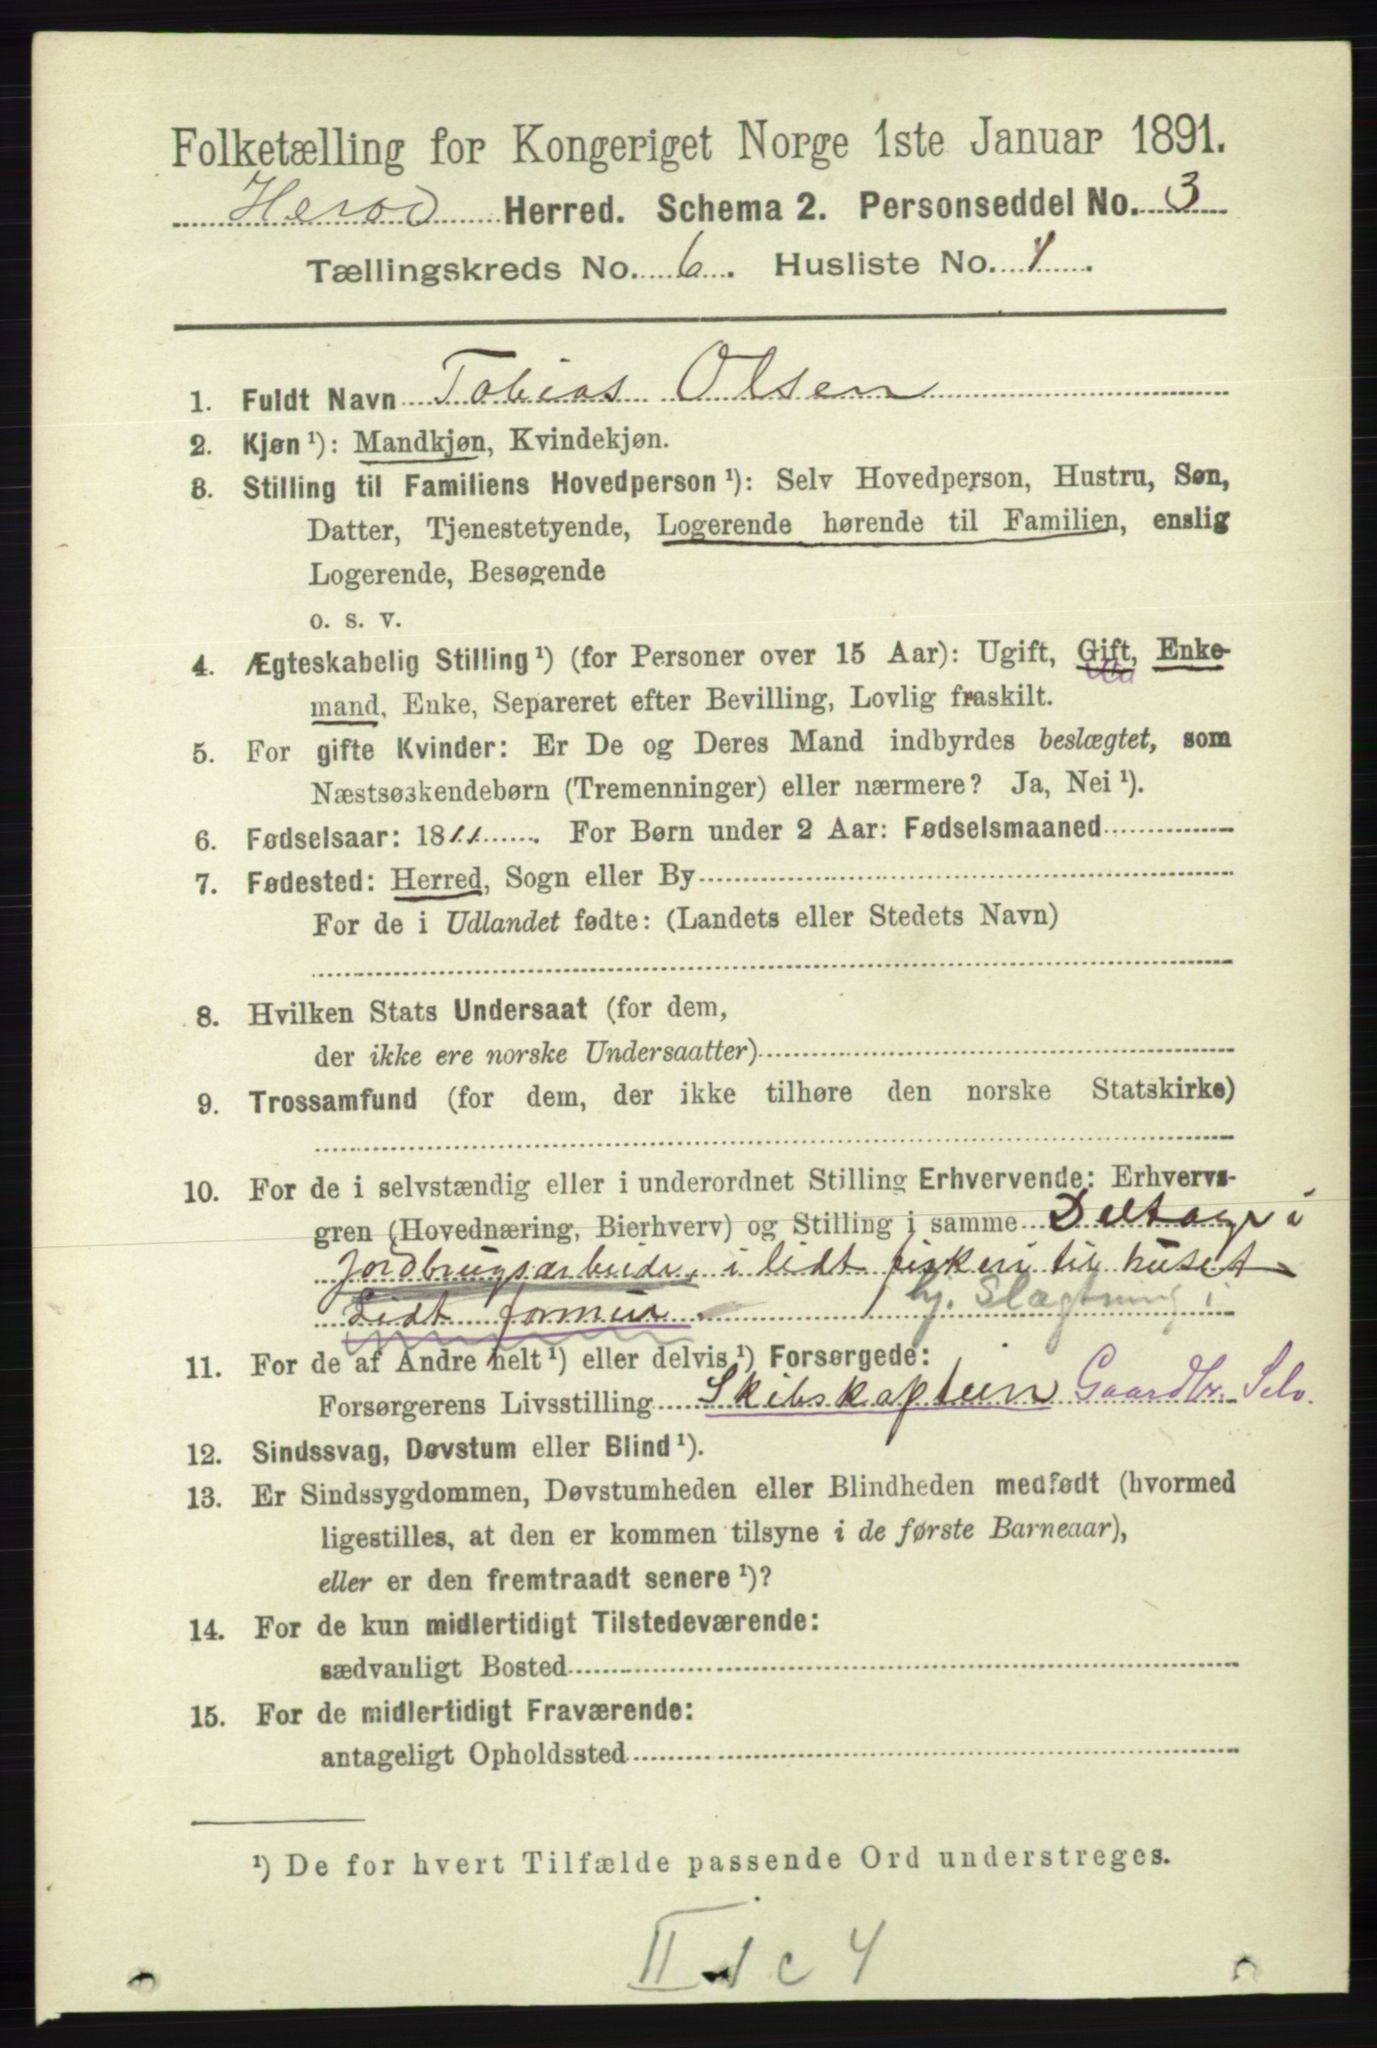 Folketælling for Kongeriget Norge 1ste Januar 1891.
Herød Herred. Schema 2. Personseddel No. 3
Tællingskreds No. 6. Husliste No. 4.
1. Fuldt Navn Tobias Olsen
2. Kjøn ¹): Mandkjøn, Kvindekjøn.
3. Stilling til Familiens Hovedperson ¹): Selv Hovedperson, Hustru, Søn,
Datter, Tjenestetyende, Logerende hørende til Familien, enslig
Logerende, Besøgende
o. s. v.
4. Ægteskabelig Stilling ¹) (for Personer over 15 Aar): Ugift, Gift, Enke-
mand, Enke, Separeret efter Bevilling, Lovlig fraskilt.
5. For gifte Kvinder: Er De og Deres Mand indbyrdes beslægtet, som
Næstsøskendebørn (Tremenninger) eller nærmere? Ja, Nei ¹).
6. Fødselsaar: 1811. For Børn under 2 Aar: Fødselsmaaned
7. Fødested: Herred, Sogn eller By
For de i Udlandet fødte: (Landets eller Stedets Navn)
8. Hvilken Stats Undersaat (for dem,
der ikke ere norske Undersaatter)
9. Trossamfund (for dem, der ikke tilhøre den norske Statskirke)
10. For de i selvstændig eller i underordnet Stilling Erhvervende: Erhvervs-
gren (Hovednæring, Bierhverv) og Stilling i samme Deltager i
Jordbrugsarbeide, i lidt fiskeri til huset
Lidt formue hj. Slagtning i
11. For de af Andre helt ¹) eller delvis ¹) Forsørgede:
Forsørgerens Livsstilling Skibskaptein Gaardbr. Selv.
12. Sindssvag, Døvstum eller Blind ¹).
13. Er Sindssygdommen, Døvstumheden eller Blindheden medfødt (hvormed
ligestilles, at den er kommen tilsyne i de første Barneaar),
eller er den fremtraadt senere ¹)?
14. For de kun midlertidigt Tilstedeværende:
sædvanligt Bosted
15. For de midlertidigt Fraværende:
antageligt Opholdssted
¹) De for hvert Tilfælde passende Ord understreges.
II c 4